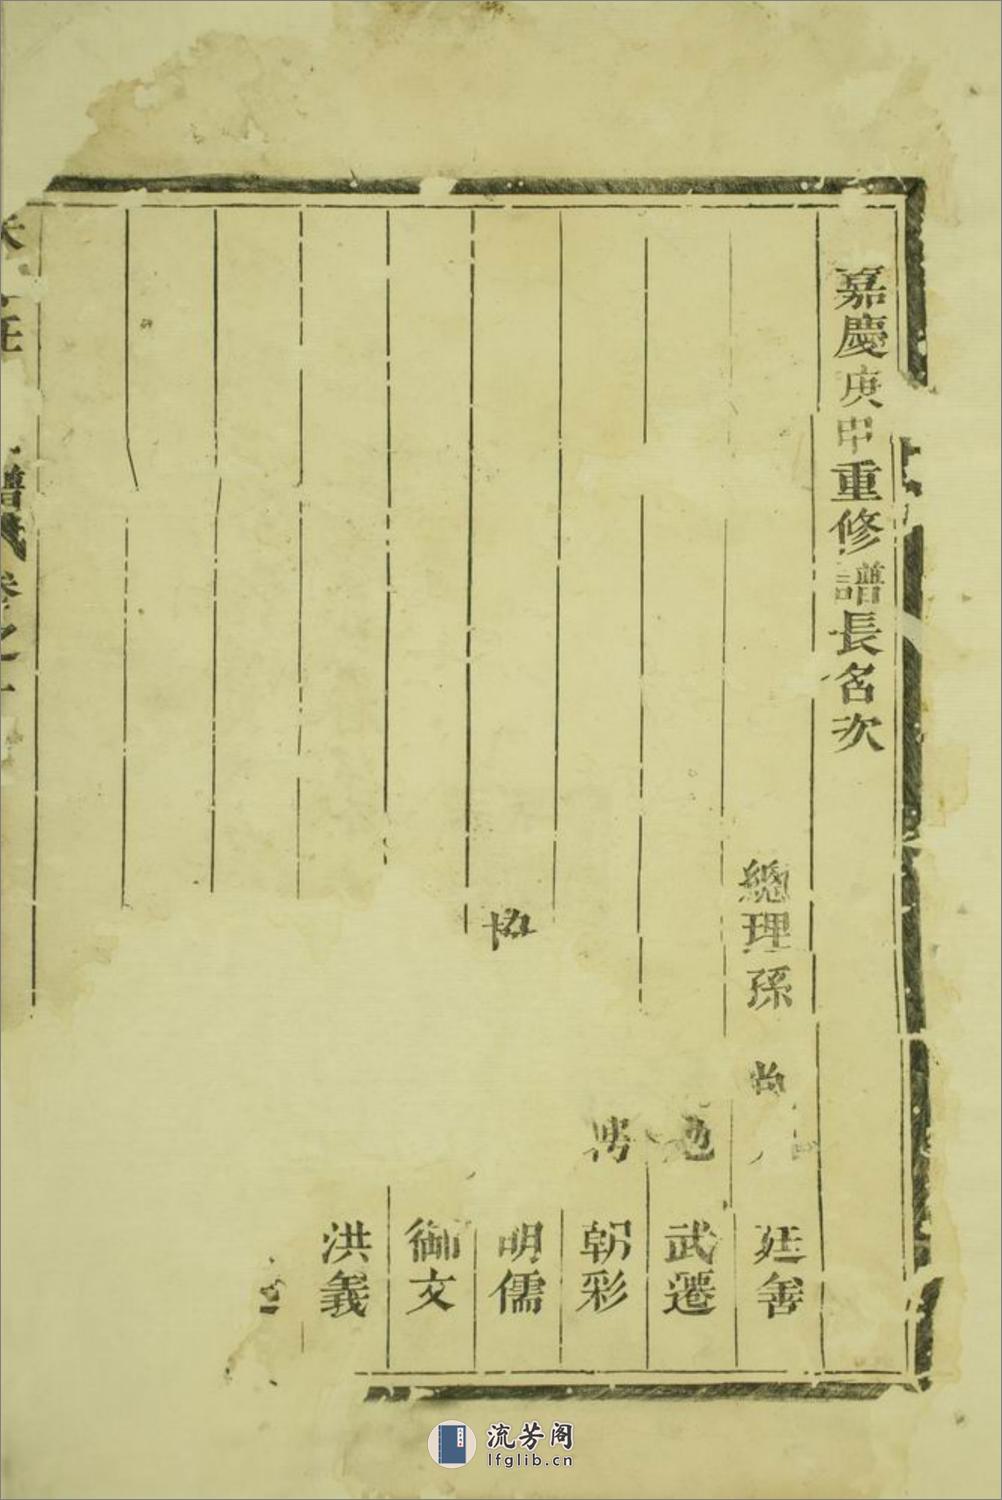 嘉慶庚申重修譜長名次
總理孫 尚 廷善
武遷
朝彩
協 明儒
御文
洪義
譜 卷之一
流芳阁
lfglib.cn